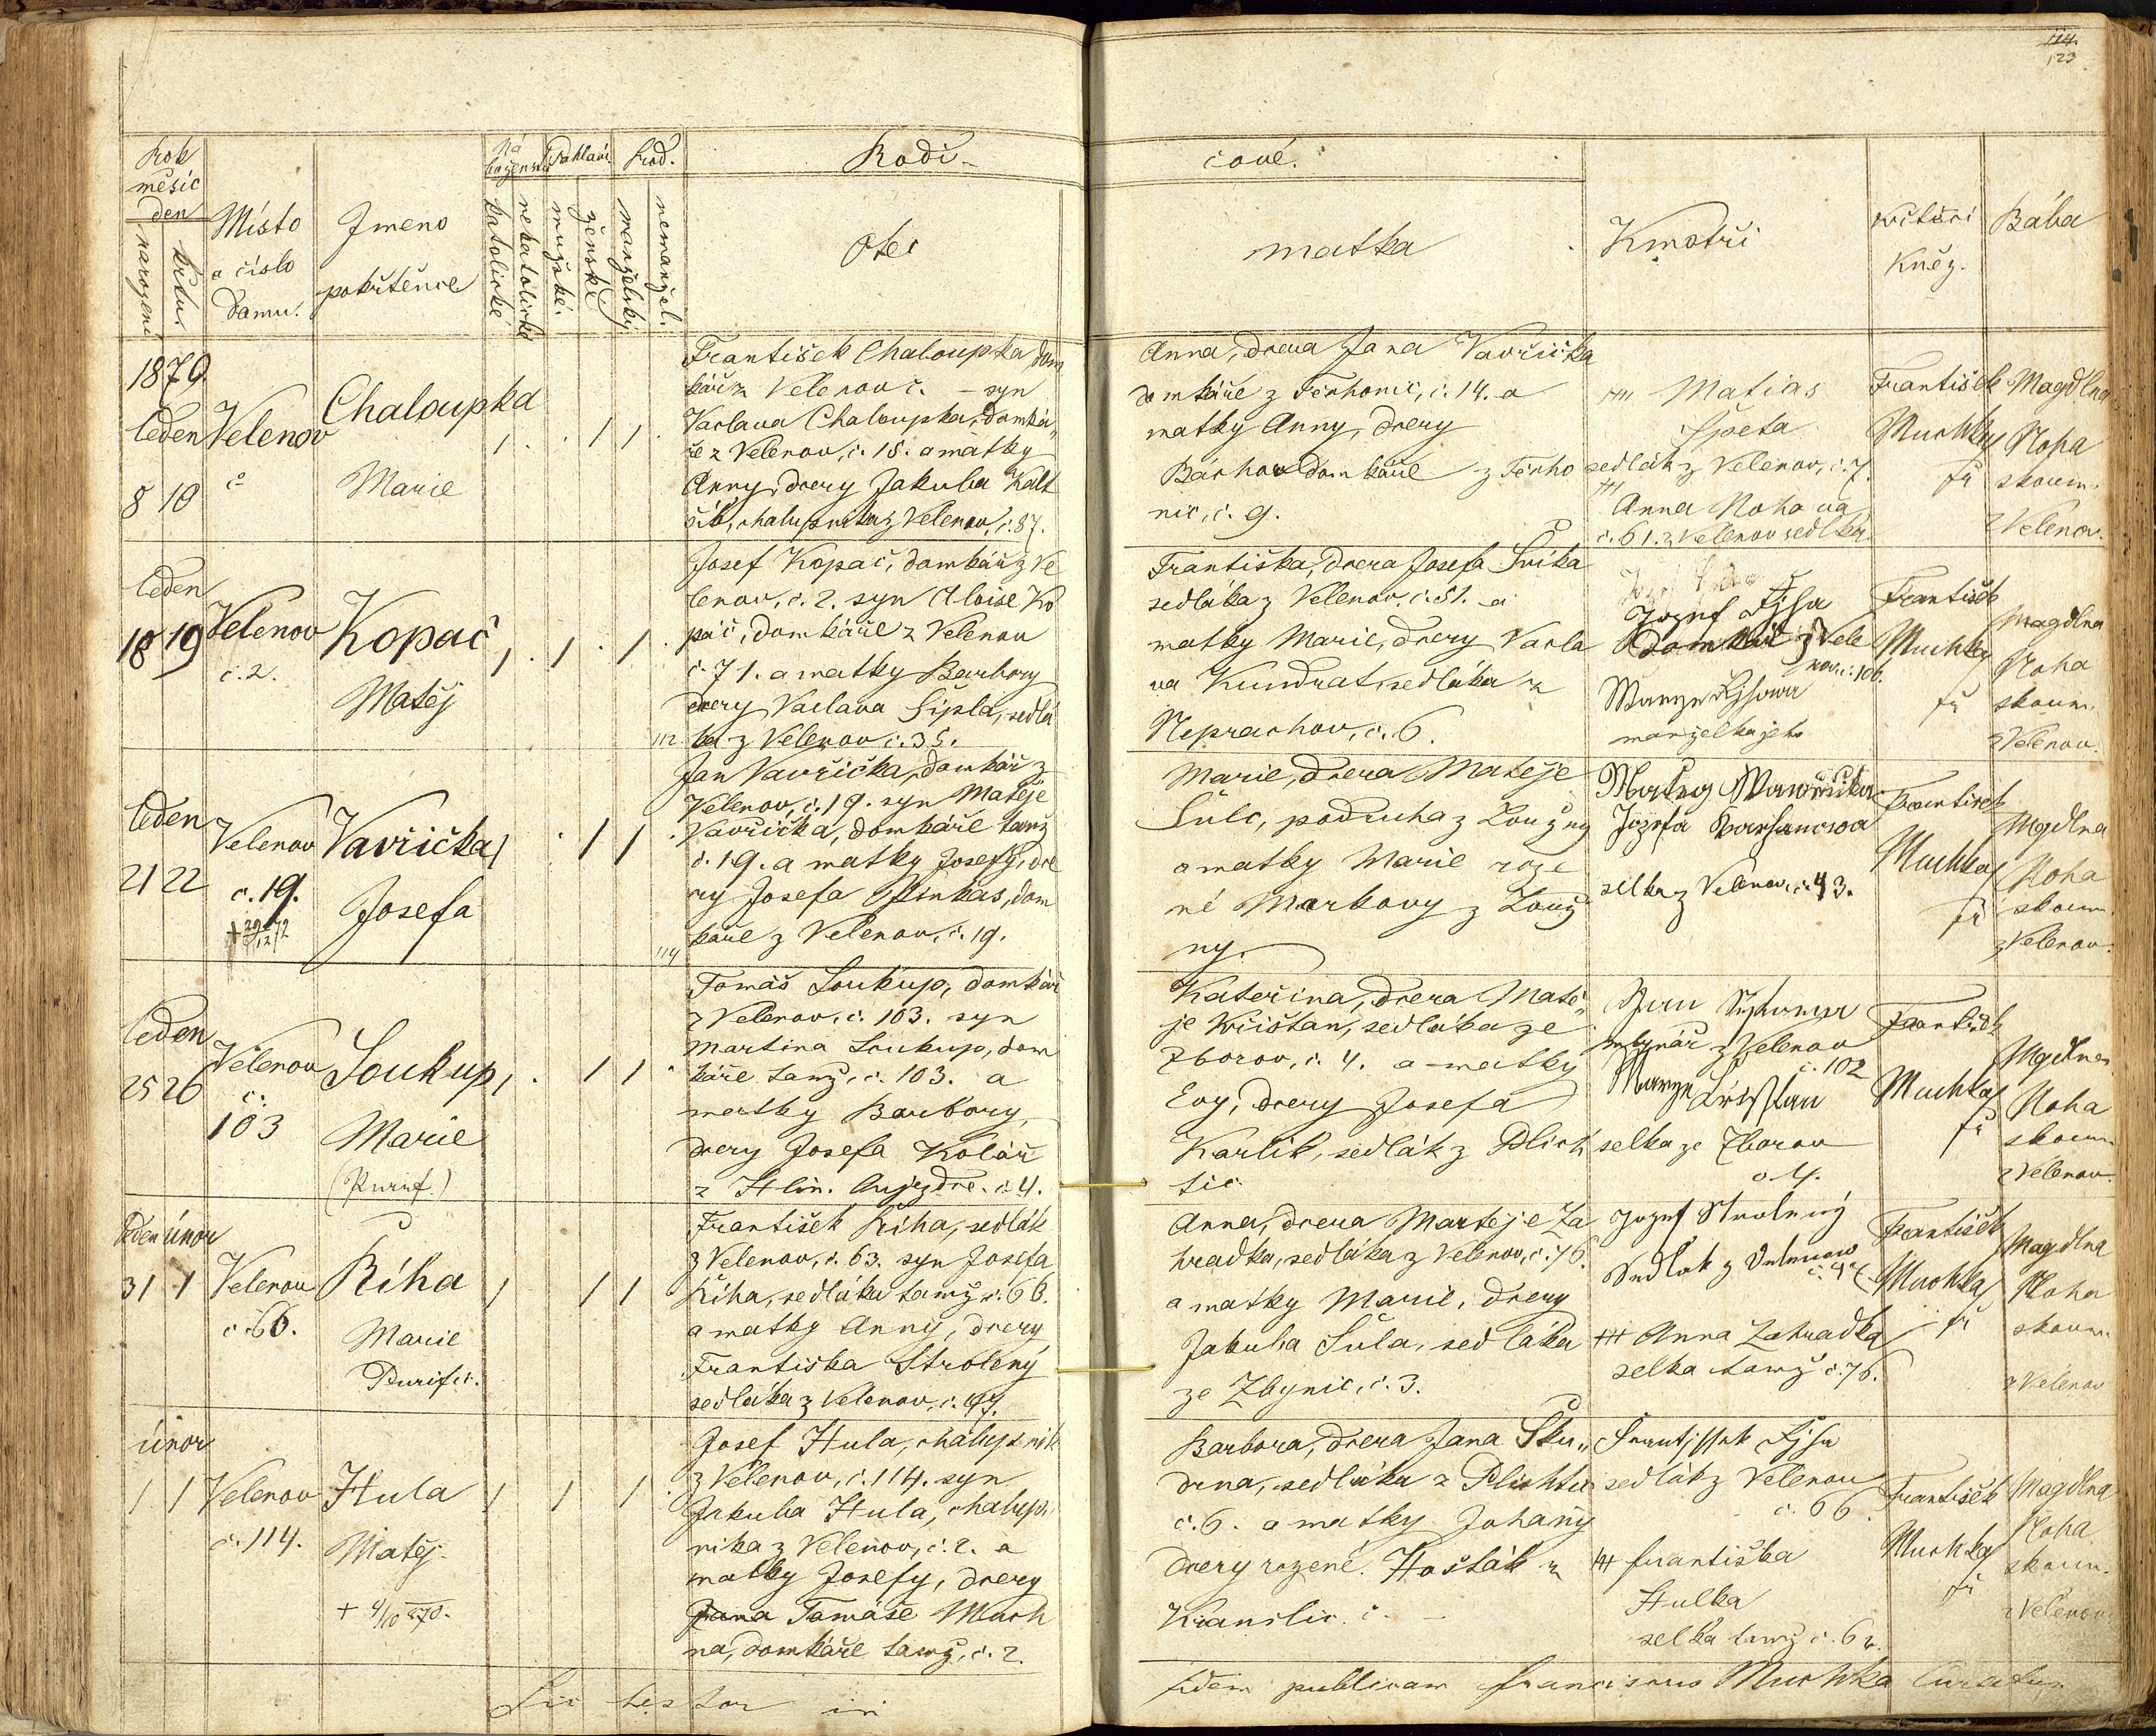 114.
123
Rok
měsíc
den
narození
křtu.
Místo
a číslo
Domu.
Jmeno
pokřtěnce
Ná
boženství
katolické
nekatolické
Pohlaví
mužské.
ženské
Lod.
manželský
nemanžel.
Rodi-
čové.
Otec
matka
Kmotři
Křtící
Kněz.
Bába
1879.
leden
8 10
Velenov
č
Chaloupka
Marie
František Chaloupka, dom
kář z Velenov č. — syn
Vaclava Chaloupka, domká„
ře z Velenov, č. 18. a matky
Anny, dcery Jakuba
chalupnika z Velenov, č. 87.
Anna, dcera Jana Vavřička
domkáře z Těrhonic, č. 14. a
matky Anny, dcery
domkáře z Těrho
nic, č. 9.
+++ Matias
Špeta
sedlák z Velenov, č. 7.
+++
Anna Nohova
č. 61. z Velenov sedlka
František
Muchka
fř
Magdlna
Noha
skoum.
z Velenov.
leden
18 19
Velenov
č. 2.
Kopač
Matěj
Josef Kopač, domkář z Ve
lenov, č. 2. syn Aloise Ko
pač, domkáře z Velenov
č. 71. a matky Barbory
dcery Vaclava Šipla, sedlá
ka z Velenov č. 35.
112.
Františka, dcera Josefa
sedláka z Velenov, č. 51. a
matky Marie, dcery Vacla
va Kundrat, sedláka z
Neprachov, č. 6.
Jozef
domkář z Vele
nov č. 106.
manželka jeho
František
Muchka
fř
Magdlna
Noha
skoum.
z Velenov.
leden
21 22
Velenov
č. 19.
Vavřička
Josefa
Jan Vavřička, domkář z
Velenov, č. 19. syn Matěje
Vavřička, domkáře tamž
č. 19. a matky Josefy, dce
ry Josefa Pinkas, dom
káře z Velenov, č. 19.
114
Marie, dcera Matěje
Šulc, podruha z Loužny
a matky Marie roze
né Markovy z Louž
ny.
Matieg Wawřička
Jozefa
selka z Velenov, č. 43.
František
Muchka
fř
Magdlna
Noha
skoum.
z Velenov.
leden
25 26
Velenov
č.
103
Soukup
Marie
(Purif.)
Tomáš Soukup, domkář
z Velenov, č. 103. syn
Martina Soukup, dom
káře tamž, č. 103. a
matky Barbory,
dcery Josefa Kolář
z Hlin. Aujezdce. č 4.
Kateřina, dcera Matě„
je Křištan, sedláka ze
Zborov, č. 4. a matky
Evy, dcery Josefa
Karlík, sedlák z Plich
tic
Jan
mlynář z Velenov
č. 102
Marye Křisstan
selka ze Zborov
č 4.
František
Muchka
fř
Magdlna
Noha
skoum.
z Velenov.
leden únor
31 1
Velenov
č 66.
Říha
Marie
Purific.
František Říha, sedlák
z Velenov, č. 63. syn Josefa
Říha, sedláka tamž č. 66.
a matky Anny, dcery
Františka Strolený
sedláka z Velenov, č. 47.
Anna, dcera Martěje Za
hradka, sedláka z Velenov, č. 76.
a matky Marie, dcery
Jakuba Šula, sedláka
ze Zbynic, č. 3.
Jozef Strolený
Sedlak z Velenow
+++ Anna Zahradka
selka tamž č. 76.
František
Muchka
fř
Magdlna
Noha
skoum.
z Velenov
únor
1 1
Velenov
č. 114.
Hula
Matěj
+ 4/10 870.
Josef Hula, chalupnik
z Velenov, č. 114. syn
Jakuba Hula, chalup„
nika z Velenov, č. 2. a
matky Josefy, dcery
Jana Tomáše Much
na, domkáře tamž, č. 2.
Barbora, dcera Jana Sku„
drna, sedláka z Plichtic
č. 6. a matky Johany
dcery rozené. Hošták z
č. —
Frantissek
sedlák z Velenov
č. 66.
+++ františka
Hulka
selka tamž č. 62.
František
Muchka
fř
Magdlna
Noha
skoum.
z Velenov
Sic testor in
fidem publicam franciscus Muchka Curatus